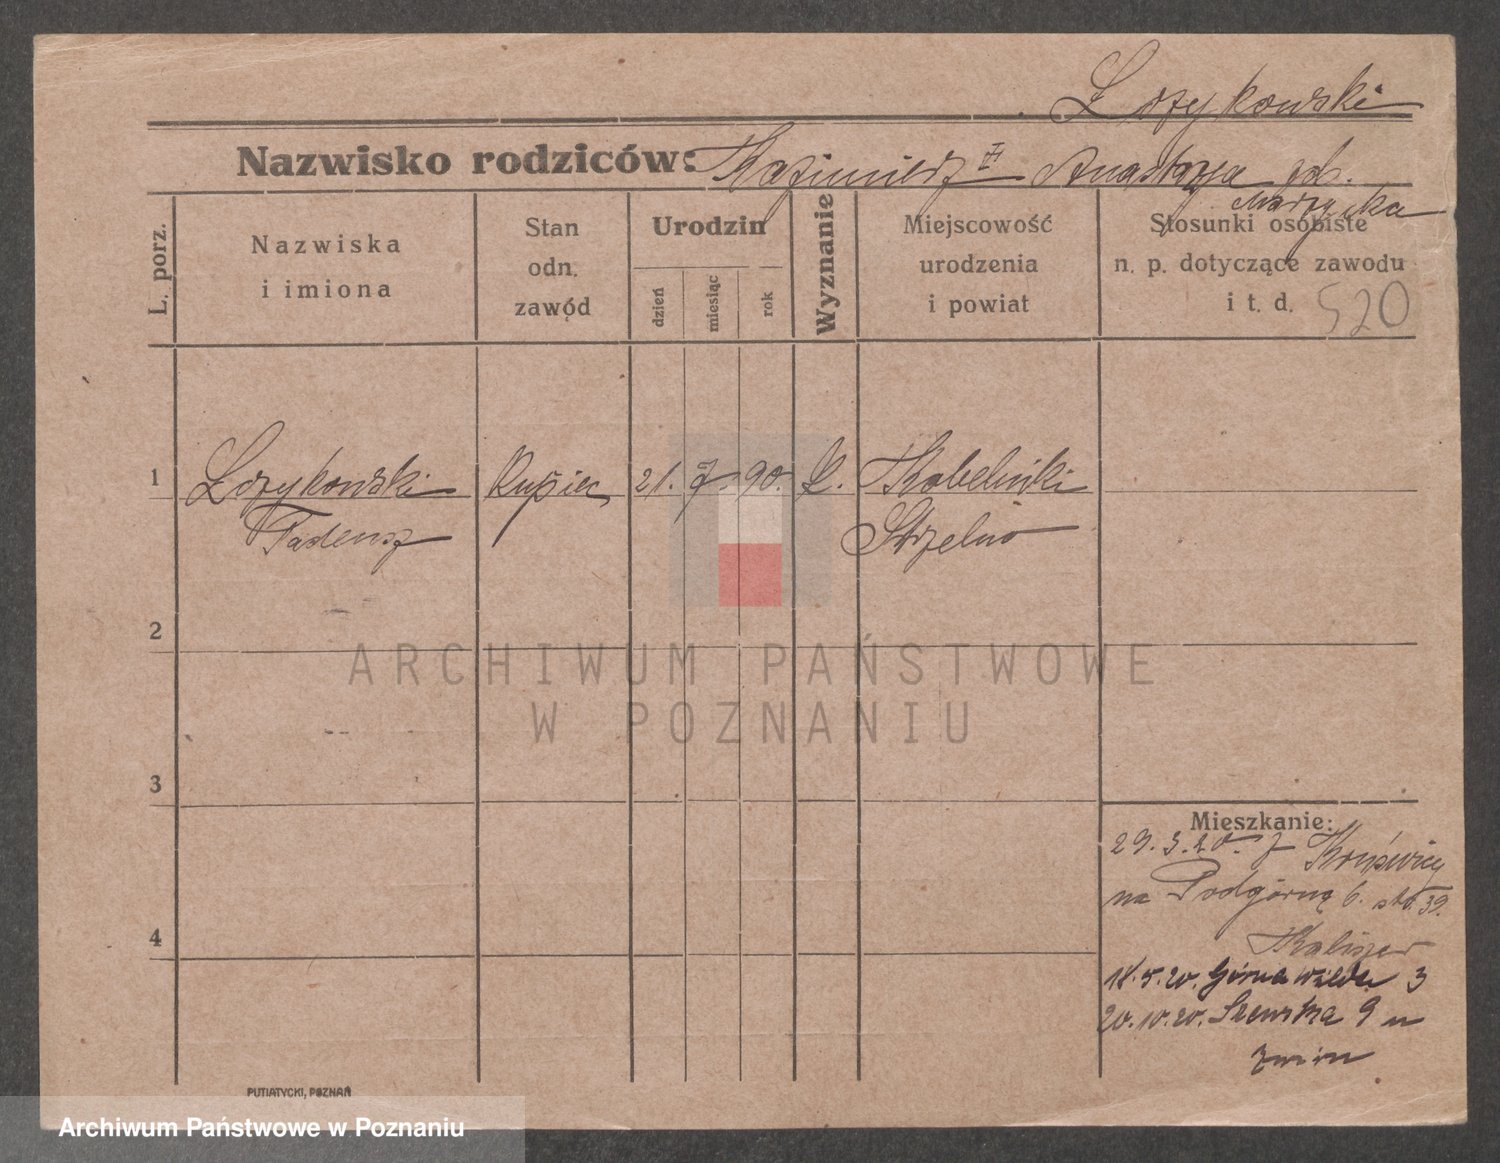 Łożykowski
Nazwisko rodziców: Kazimierz i Anastazya
L. porz.
Nazwiska
i imiona
Stan
odn.
zawód
Urodzin
dzień
miesiąc
rok
Wyznanie
Miejscowość
urodzenia
i powiat
Stosunki osobiste
n. p. dotyczące zawodu
i t. d.
520
1
Łożykowski
Tadeusz
Kupiec
21. 7. 90. k.
Kobelniki
Strzelno
2
3
4
Mieszkanie:
29. 3. 20. z
na Podgórną 6.
18.5.20. Górna Wilda 3
20.10.20. Szewska 9 u
PUTIATYCKI, POZNAŃ
ARCHIWUM PAŃSTWOWE
W POZNANIU
Archiwum Państwowe w Poznaniu